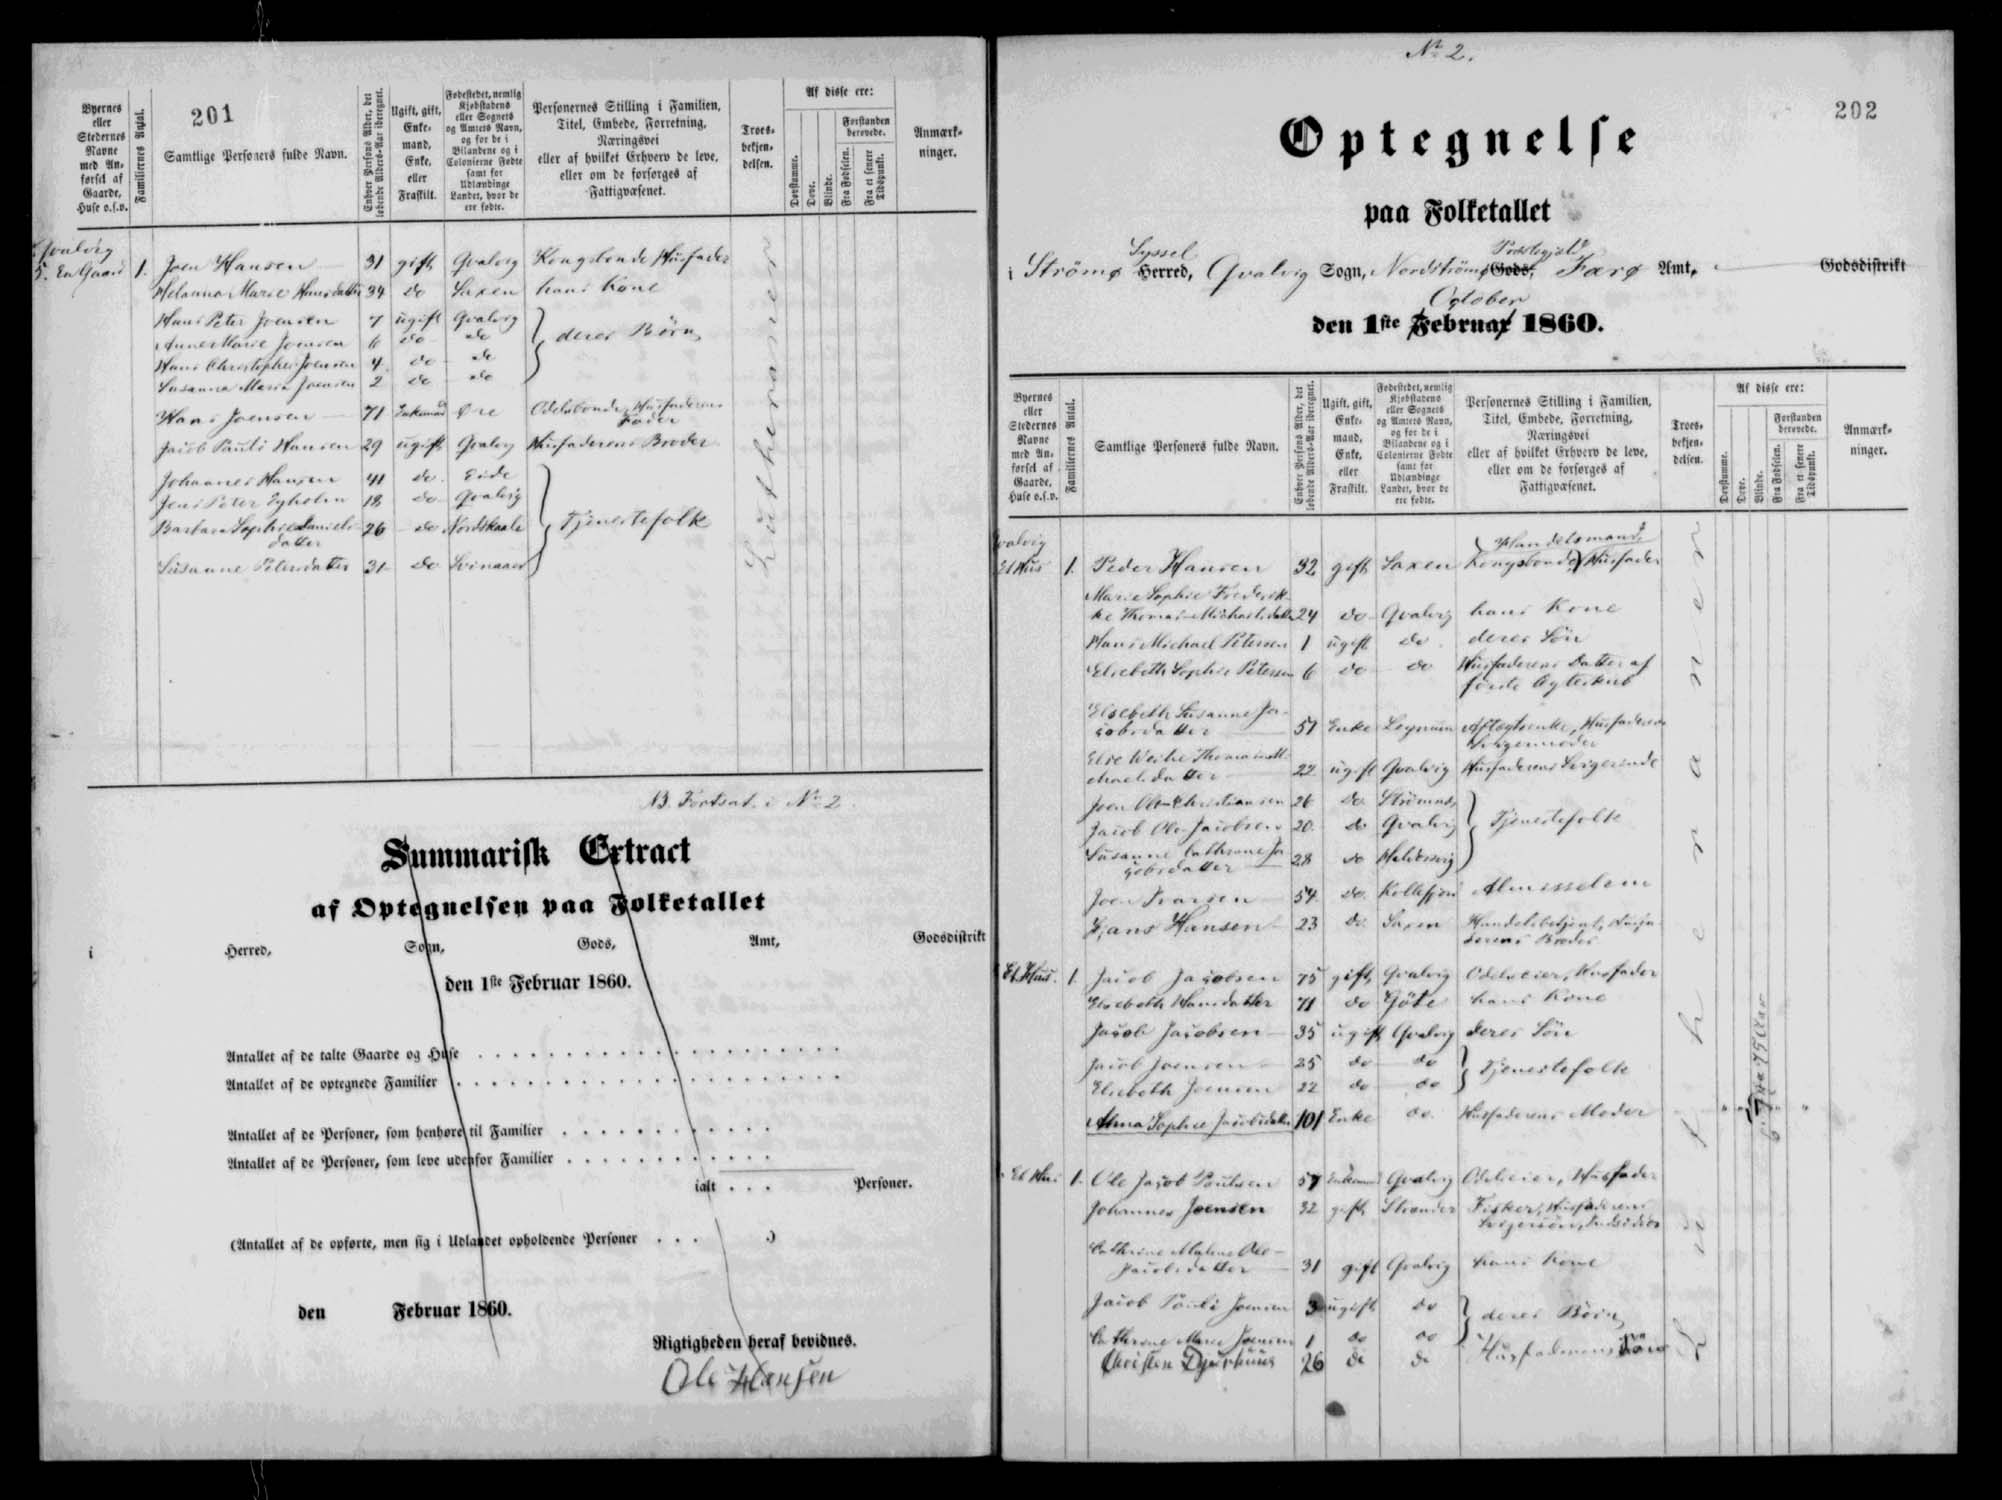 201
Byernes eller Stedernes Navne med Anførsel af Gaarde, Huse o.s.v.
Familiernes Antal.
Samtlige Personers fulde Navn.
Enhver Persons Alder, det løbende Alders-Aar iberegnet.
Ugift, gift, Enkemand, Enke, eller Fraskilt.
Fødestedet, nemlig Kjøbstadens eller Sognets og Amtets Navn, og for de i Bilandene og i Colonierne Fødte samt for Udlændinge Landet, hvor de ere fødte.
Personernes Stilling i Familien, Titel, Embede, Forretning, Næringsvei eller af hvilket Erhverv de leve, eller om de forsørges af Fattigvæsenet.
Troesbekjendelsen.
Af disse ere:
Døvstumme.
Døve.
Blinde.
Forstanden berøvede.
Fra Fødselen.
Fra et senere Tidspunkt.
Anmærkninger.
Qvalvig
5. En Gaard 1. Joen Hansen 31 gift Qvalvig Kongsbonde Husfader
Helanna Marie Hansdatter 34 do Saxen hans Kone
Hans Peter Joensen 7 ugift Qvalvig
Anne Marie Joensen 6 do do deres Børn
Hans Christopher Joensen 4 do do
Susanna Maria Joensen 2 do do
Hans Joensen 71 Enkemand Øre Odelsbonde, Husfaderens Fader
Jacob Pauli Hansen 29 ugift Qvalvig Husfaderens Broder
Johannes Hansen 41 do Eide
Jens Peter Egholm 18 do Qvalvig
Barbara Sophie Danielsdatter 26 do Nordskaale Tjenestefolk
Susanne Petersdatter 31 do Svinaaer
Lutheraner
NB. Fortsat i No 2.
Summarisk Extract
af Optegnelsen paa Folketallet
i Herred, Sogn, Gods, Amt, Godsdistrikt
den 1ste Februar 1860.
Antallet af de talte Gaarde og Huse
Antallet af de optegnede Familier
Antallet af de Personer, som henhøre til Familier
Antallet af de Personer, som leve udenfor Familier
ialt . . . Personer.
(Antallet af de opførte, men sig i Udlandet opholdende Personer . . . )
den Februar 1860.
Rigtigheden heraf bevidnes.
Ole Hansen
No 2.
202
Optegnelse
paa Folketallet
Syssel Præstegjeld
i Strömø Herred, Qvalvig Sogn, Nordströmø Gods, Færø Amt, Godsdistrikt
October
den 1ste Februar 1860.
Byernes eller Stedernes Navne med Anførsel af Gaarde, Huse o.s.v.
Familiernes Antal.
Samtlige Personers fulde Navn.
Enhver Persons Alder, det løbende Alders-Aar iberegnet.
Ugift, gift, Enkemand, Enke, eller Fraskilt.
Fødestedet, nemlig Kjøbstadens eller Sognets og Amtets Navn, og for de i Bilandene og i Colonierne Fødte samt for Udlændinge Landet, hvor de ere fødte.
Personernes Stilling i Familien, Titel, Embede, Forretning, Næringsvei eller af hvilket Erhverv de leve, eller om de forsørges af Fattigvæsenet.
Troesbekjendelsen.
Af disse ere:
Døvstumme.
Døve.
Blinde.
Forstanden berøvede.
Fra Fødselen.
Fra et senere Tidspunkt.
Anmærkninger.
Qvalvig Handelsmand,
Et Hus 1. Peder Hansen 32 gift Saxen Kongsbonde, Husfader
Marie Sophie Frederikke Thomas-Michaelsdatter 24 do Qvalvig hans Kone
Hans Michael Petersen 1 ugift do deres Søn
Elsebeth Sophie Petersen 6 do do Husfaderens Datter af første Ægteskab
Elsebeth Susanne Jacobsdatter 51 Enke Husfaderens Svigermoder
22 ugift Qvalvig Husfaderens Svigerinde
Joen Christiansen 26 do Strömnæs
Jacob Ole Jacobsen 20 do Qvalvig Tjenestefolk
Susanne Cathrine Jacobsdatter 28 do Haldorsvig
Joen Ivarsen 54 do Kollefjord Almisselem
Hans Hansen 23 do Saxen Handelsbetjent, Husfaderens Broder
Et Hus. 1. Jacob Jacobsen 75 gift Qvalvig Odelseier, Husfader
Elsebeth Hansdatter 71 do Göte hans Kone
Jacob Jacobsen 35 ugift Qvalvig deres Søn
Jacob Joensen 25 do do Tjenestefolk
Elsebeth Joensen 22 do do
Anna Sophie Jacobsdatter 101 Enke do Husfaderens Moder
Et Hus 1. Ole Jacob Poulsen 57 Enkemand Qvalvig Odelseier, Husfader
Johannes Joensen 32 gift Strander Fisker, Husfaderens Svigersøn, Inderste
Cathrine Malene Ole-Jacobsdatter 31 gift Qvalvig hans Kone
Jacob Pauli Joensen 3 ugift do deres Børn
Cathrine Marie Joensen 1 do do
Christen Djurhuus 26 do do Husfaderens Søn
Lutheraner